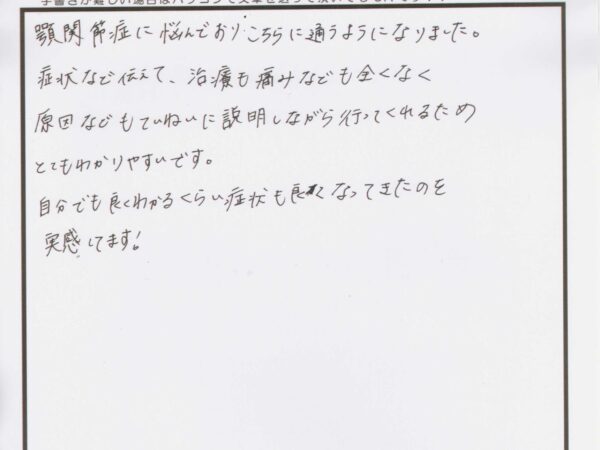 手書きが難しい場合はパソコンで文章を送って頂いても
顎関節症に悩んでおり、こちらに通うようになりました。
症状など伝えて、治療も痛みなども全くなく
原因などもていねいに説明しながら行ってくれるため
とてもわかりやすいです。
自分でも良くわかるくらい症状も良くなってきたのを
実感してます!